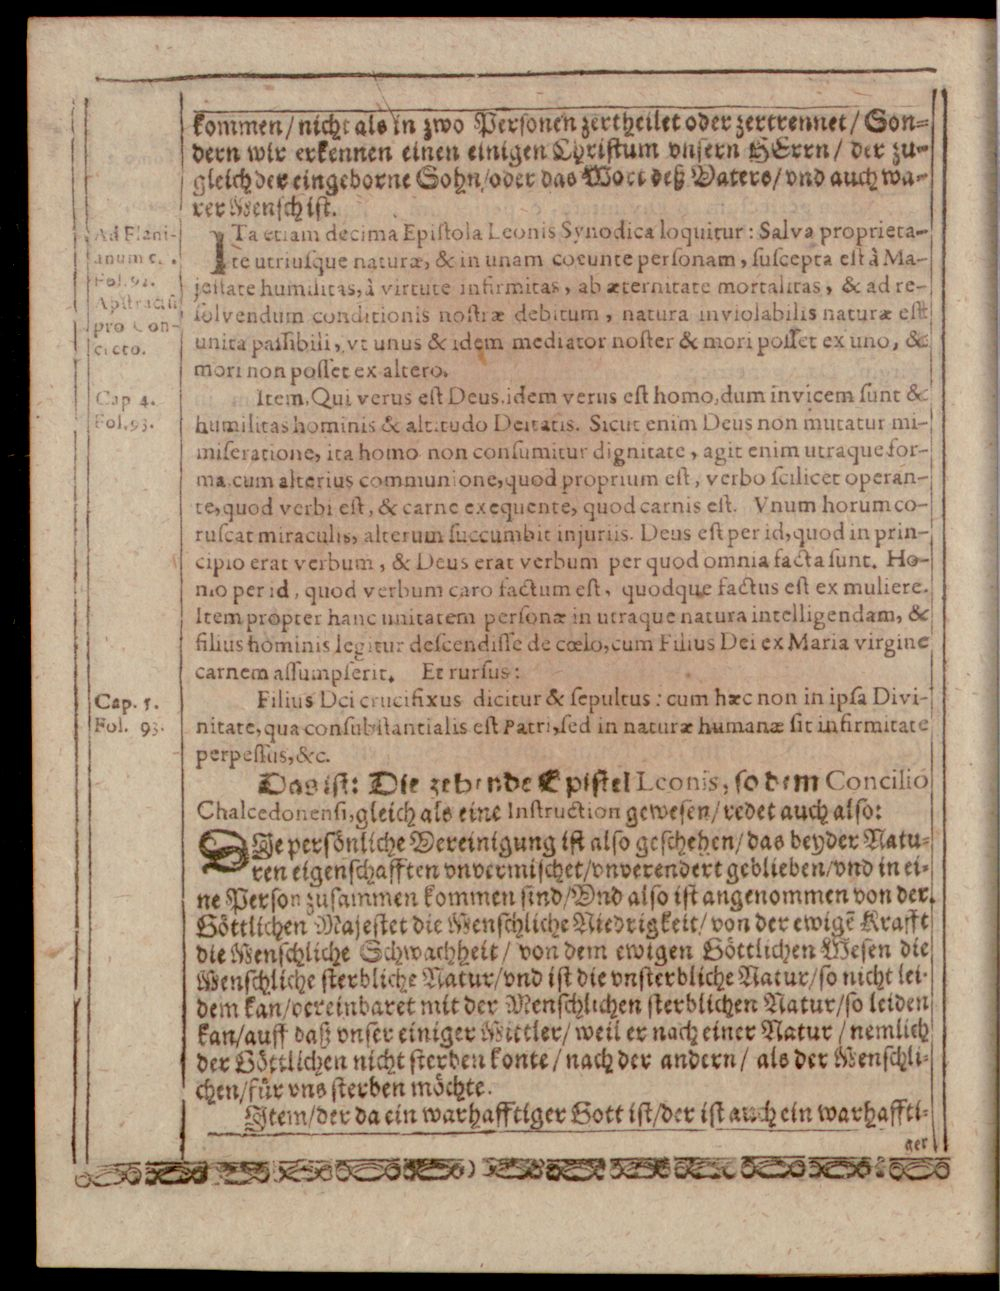 kommen/nicht als in zwo Personen zertheilet oder zertrennet/ Son-
dern wir erkennen einen einigen Christum vnsern HErrn/ der zu-
gleich der eingeborne Sohn/oder das Wort deß Vaters/vnd auch wa-
rer Mensch ist.
Ad Flani-
anum c. .
Fol. 92.
Abstractũ
pro Con-
creto.
ITa etiam decima Epistola Leonis Synodica loquitur: Salva proprieta-
te utriusque naturæ, & in unam coeunte personam, suscepta est à Ma-
jestate humilitas, à virtute infirmitas, ab æternitate mortalitas, & ad re-
solvendum conditionis nostræ debitum, natura inviolabilis naturæ est
unita passibili, vt unus & idem mediator noster & mori posset ex uno, &
mori non posset ex altero.
Cap 4.
Fol. 93.
Item, Qui verus est Deus, idem verus est homo, dum invicem sunt &
humilitas hominis & altitudo Deitatis. Sicut enim Deus non mutatur mi-
miseratione, ita homo non consumitur dignitate, agit enim utraque for-
ma cum alterius communione, quod proprium est, verbo scilicet operan-
te, quod verbi est, & carne exequente, quod carnis est. Vnum horum co-
ruscat miraculis, alterum succumbit injuriis. Deus est per id, quod in prin-
cipio erat verbum, & Deus erat verbum per quod omnia facta sunt. Ho-
mo per id, quod verbum caro factum est, quodque factus est ex muliere.
Item propter hanc unitatem personæ in utraque natura intelligendam, &
filius hominis legitur descendisse de cœlo, cum Filius Dei ex Maria virgine
carnem assumpserit. Et rursus:
Cap. 5.
Fol. 93.
Filius Dei crucifixus dicitur & sepultus: cum hæc non in ipsa Divi-
nitate, qua consubstantialis est Patri, sed in naturæ humanæ sit infirmitate
perpessus, &c.
Das ist: Die zehende Epistel Leonis, so dem Concilio
Chalcedonensi, gleich als eine Instruction gewesen/ redet auch also:
DIe persönliche Vereinigung ist also geschehen/ das beyder Natu-
ren eigenschafften vnvermischet/vnverendert geblieben/vnd in ei-
ne Person zusammen kommen sind/Vnd also ist angenommen von der
Göttlichen Majestet die Menschliche Niedrigkeit/ von der ewigẽ Krafft
die Menschliche Schwachheit/ von dem ewigen Göttlichen Wesen die
Menschliche sterbliche Natur/vnd ist die vnsterbliche Natur/so nicht lei-
dem kan/vereinbaret mit der Menschlichen sterblichen Natur/so leiden
kan/auff daß vnser einiger Mittler/ weil er nach einer Natur/nemlich
der Göttlichen nicht sterben konte/ nach der andern/ als der Menschli-
chen/für vns sterben möchte.
Item/der da ein warhafftiger Gott ist/der ist auch ein warhaffti-
ger